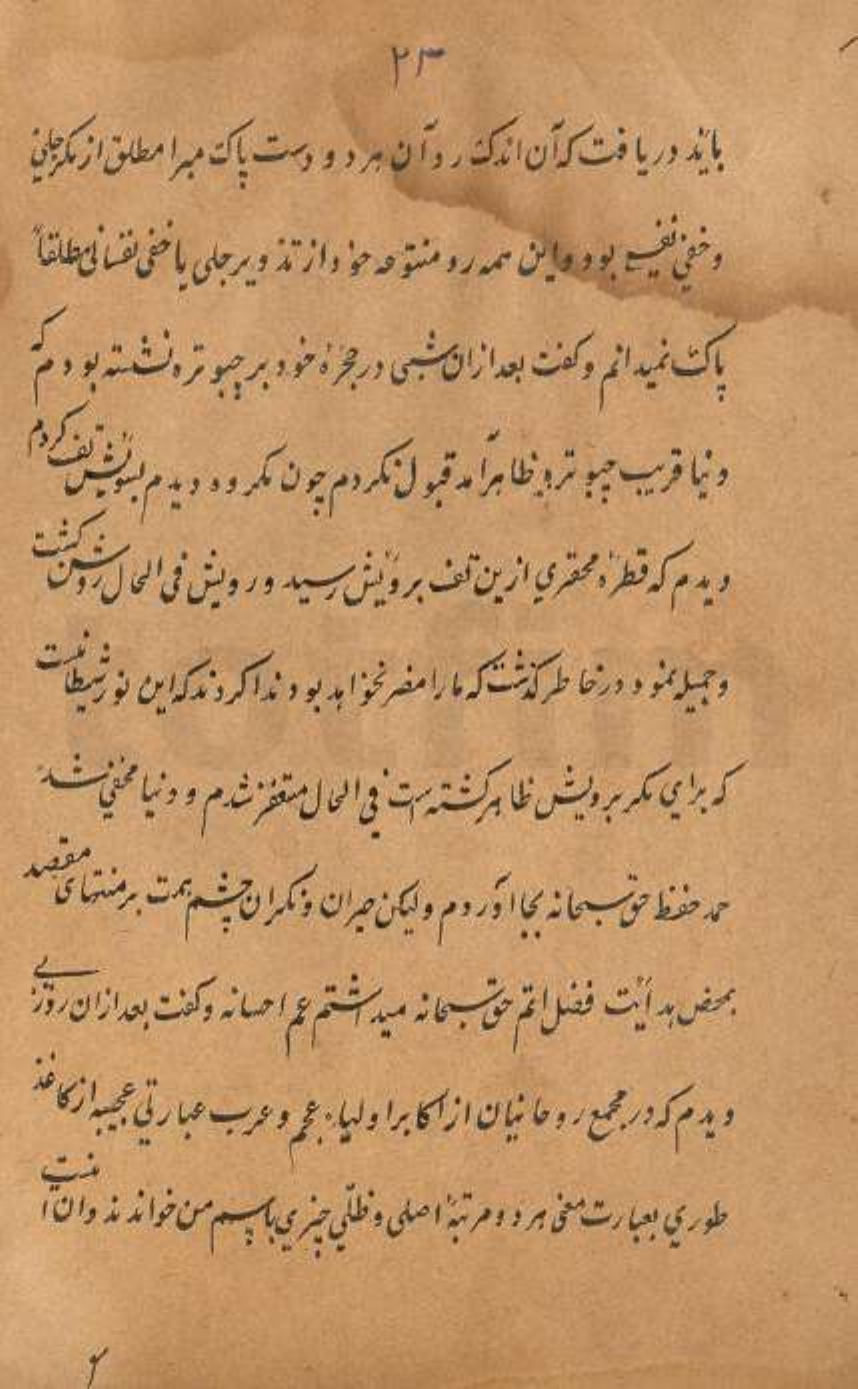 ۲۳
باید دریافت که آن اندک رو آن هر دو دست پاک مبرا مطلق از مکر جلی
و خفی نفیسی بود و این همه رو متنوعه خود از تذویر جلی یا خفی نفسانی مطلقاً
پاک نمیدانم و کفت بعد ازان شبی در حجرۀ خود بر چبوتره نشسته بودم که
دنیا قریب چبوتره ظاهر آمد قبول نکردم چون مکروه دیدم بسویش تف کردم
دیدم که قطرۀ محقری ازین تف برویش رسید و رویش فی الحال روشن کشت
و جمیله نمود در خاطر کذشت که مارا مضر نخواهد بود ندا کردند که این نور شیطانیست
که برای مکر برویش ظاهر کشته است فی الحال متنفر شدم و دنیا مخفی شد
حمد حفظ حق سبحانه بجا آوردم ولیکن حیران و نکران چشم همت بر منتهای مقصد
بمحض هدایت فضل اتم حق سبحانه میداشتم عم احسانه و کفت بعد ازان روزی
دیدم که در مجمع روحانیان از اکابر اولیاء عجم و عرب عبارتی عجیبه از کاغذ
طوری بعبارت معنی هر دو مرتبۀ اصلی و ظلی چیزی باسم من خواندند و ان